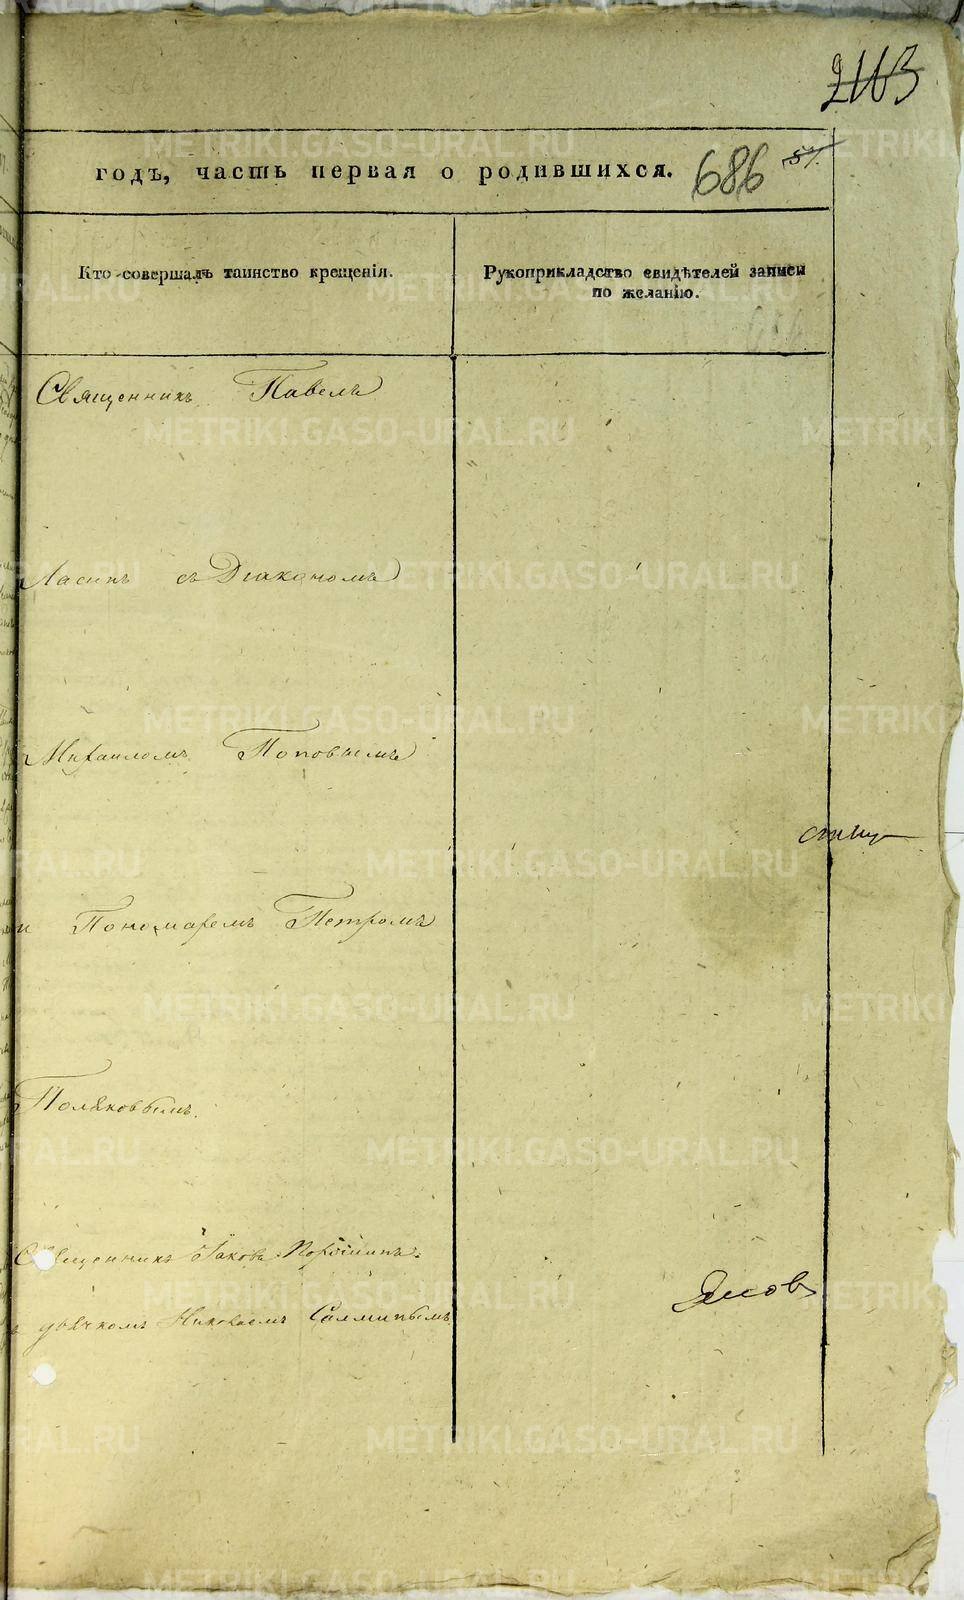 2113
годъ, часть первая о родившихся. 686 57.
Кто совершалъ таинство крещенія.
Рукоприкладство свидѣтелей записи по желанію.
Священникъ Павелъ
съ Діакономъ
Михаиломъ Поповымъ
и Пономаремъ Петромъ
Поляковымъ.
Священникъ Іаковъ
съ дьячкомъ Николаемъ
METRIKI.GASO-URAL.RU